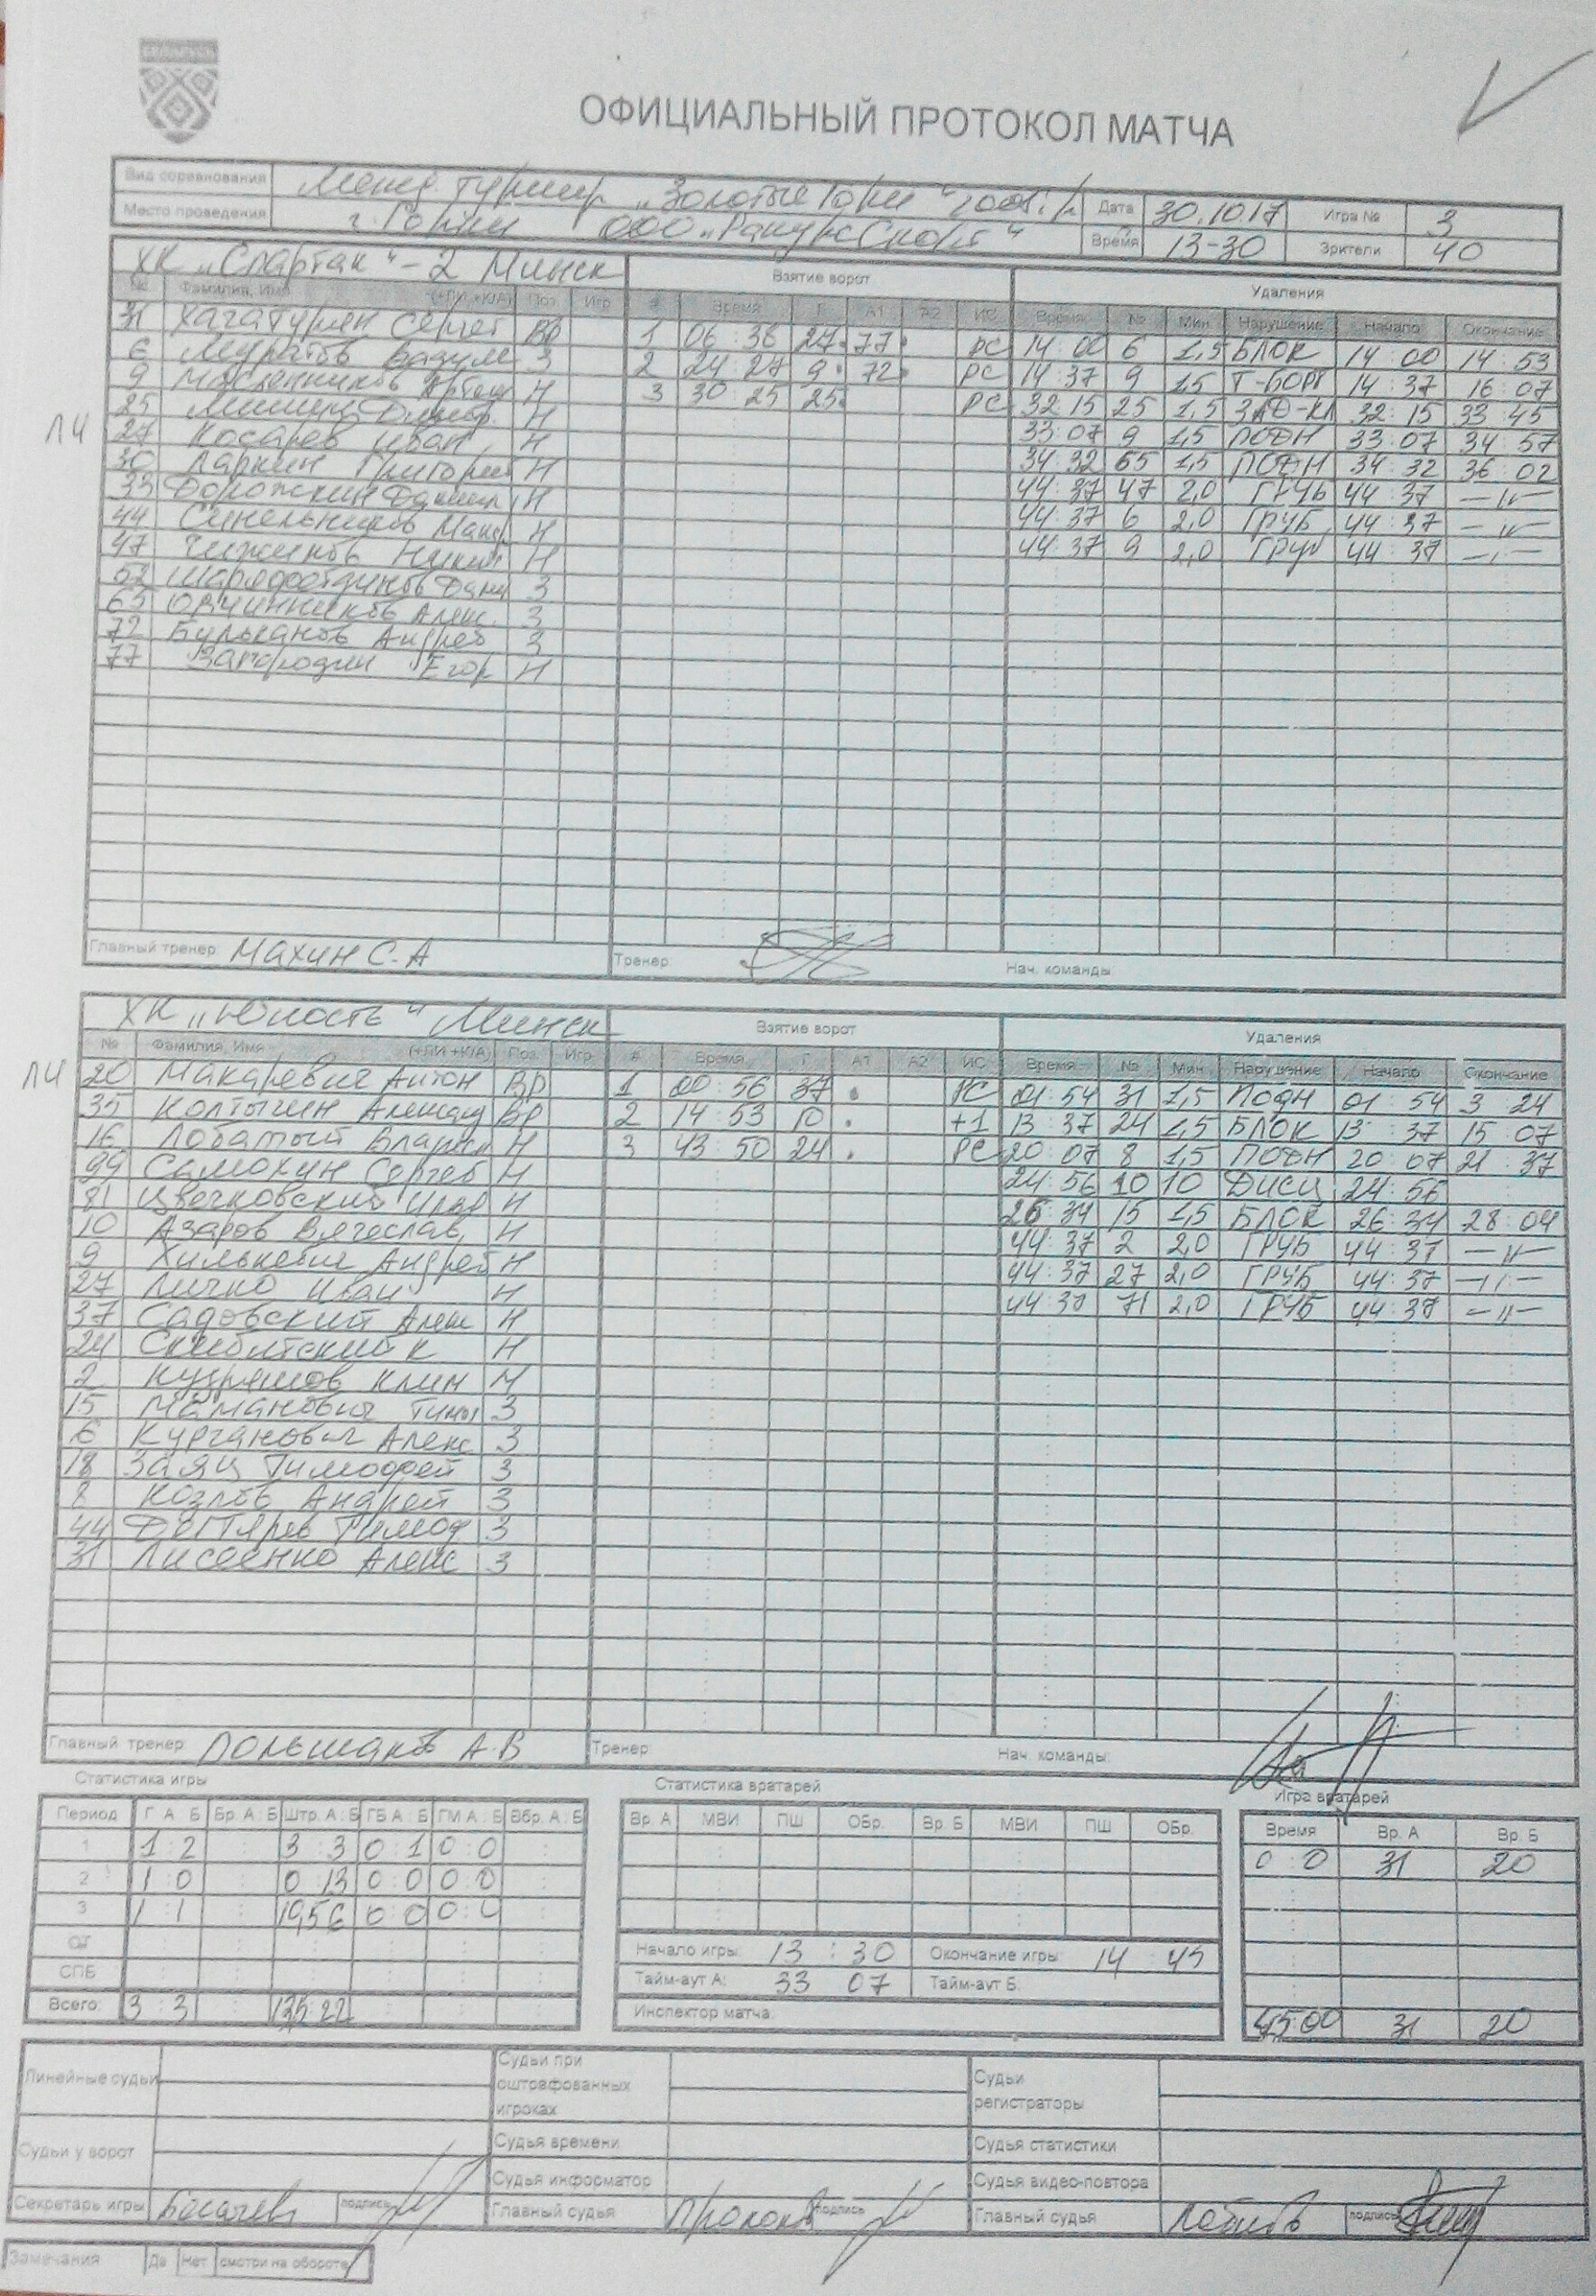 БЕЛАРУСЬ
ОФИЦИАЛЬНЫЙ ПРОТОКОЛ МАТЧА
Вид соревнования турнир „Золотые Дата 30.10.17 Игра № 3
Место проведения г. Горки ООО „РакурсСпорт“ Время 13-30 Зрители 40
ХК „Спартак“-2 Минск Взятие ворот Удаления
№ Фамилия, Имя (+ЛИ +К/А) Поз Игр # Время Г А1 А2 ИС Время № Мин Нарушение Начало Окончание
31 Хачатурян Сергей Вр 1 06:36 27 77 РС 14 00 6 1,5 БЛОК 14 00 14 53
6 Муратов Вадим З 2 24 27 9 72 РС 14 37 9 1,5 Т-БОРТ 14 37 16 07
9 Масленников Артем Н 3 30 25 25 РС 32 15 25 1,5 ЗАД-КЛ 32 15 33 45
25 Н 33 07 9 1,5 ПОДН 33 07 34 57
ЛЧ 27 Косарев Иван Н 34 32 65 1,5 ПОДН 34 32 36 02
30 Ларкин Григорий Н 44:37 47 2,0 ГРУБ 44:37 —"—
33 Дорожкин Даниил Н 44:37 6 2,0 ГРУБ 44:37 —"—
44 Синельников Макар Н 44:37 9 2,0 ГРУБ 44:37 —"—
47 Чижиков Никит Н
52 З
65 Овчинников Алекс. З
72 Андрей З
77 Загородин Егор Н
Главный тренер: Махин С.А Тренер: Нач. команды
ХК „Юность“ Минск Взятие ворот Удаления
№ Фамилия, Имя (+ЛИ +К/А) Поз Игр # Время Г А1 А2 ИС Время № Мин Нарушение Начало Окончание
ЛЧ 20 Макаревич Антон Вр 1 00 56 37 РС 01:54 31 1,5 ПОДН 01 54 3 24
35 Колтыгин Вр 2 14 53 10 +1 13 37 24 1,5 БЛОК 13 37 15 07
16 Лобатый Н 3 43 50 24 РС 20 07 8 1,5 ПОДН 20 07 21 37
99 Самохун Сергей Н 24:56 10 10 ДИСЦ 24:56
81 Цвечковский Н 26 34 15 1,5 БЛОК 26:34 28 04
10 Азаров Вячеслав Н 44:37 2 2,0 ГРУБ 44:37 —"—
9 Хилькевич Андрей Н 44:37 27 2,0 ГРУБ 44:37 —"—
27 Личко Иван Н 44:37 71 2,0 ГРУБ 44:37 —"—
37 Садовский Алек Н
24 Н
2 Кудряшов Клим Н
15 Маманович Тим З
6 Курганович Алекс З
18 Заяц Тимофей З
8 Козлов Андрей З
44 Дегтярев Тимоф З
31 Лисеенко Алекс З
Главный тренер: А.В Тренер: Нач. команды:
Статистика игры Статистика вратарей Игра вратарей
Период Г А : Б Бр. А : Б Штр. А : Б ГБ А : Б ГМ А : Б Вбр. А : Б Вр. А МВИ ПШ ОБр. Вр. Б МВИ ПШ ОБр. Время Вр. А Вр. Б
1 1 2 3 3 0 1 0 0 0 0 31 20
2 1 0 0 13 0 0 0 0
3 1 1 0 0 0 0
ОТ Начало игры: 13 : 30 Окончание игры: 14 45
СПБ Тайм-аут А: 33 07 Тайм-аут Б:
Всего: 3 3 Инспектор матча: 45 00 31 20
Линейные судьи Судьи при оштрафованных игроках Судьи регистраторы
Судьи у ворот Судья времени Судья статистики
Судья информатор Судья видео-повтора
Секретарь игры подпись Главный судья подпись Главный судья подпись
Замечания Да Нет смотри на обороте